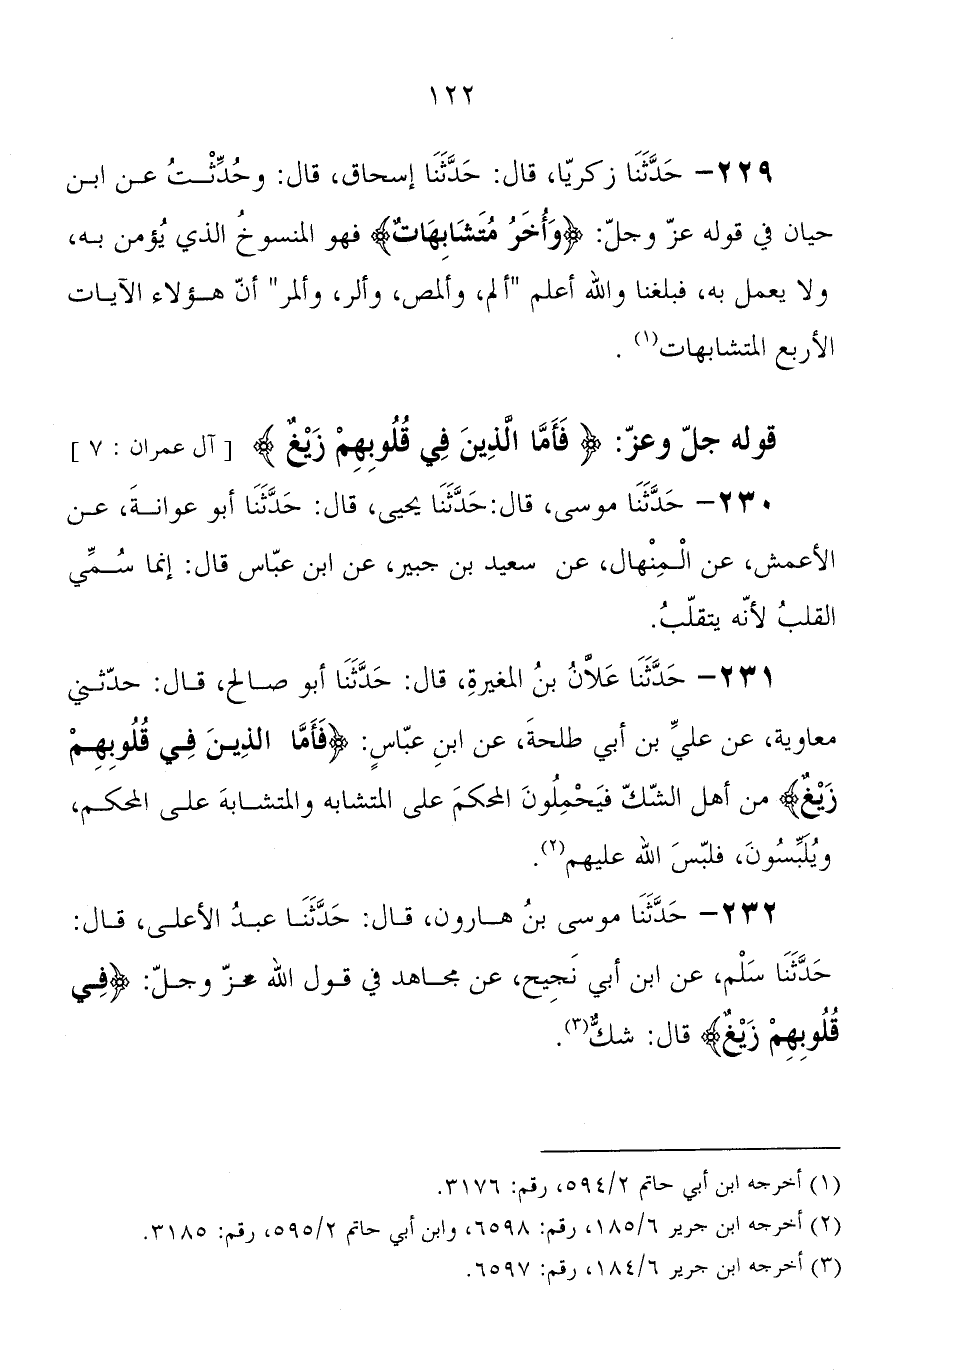 ١٢٢
٢٢٩- حَدَّثَنَا زكريّا، قال: حَدَّثَنَا إسحاق، قال: وحُدِّثْتُ عن ابن
حيان في قوله عزّ وجلّ: ﴿وَأُخَرُ مُتَشَابِهَاتٌ﴾ فهو المنسوخُ الذي يُؤمن به،
ولا يعمل به، فبلغنا والله أعلم "ألم، وألمص، وألر، وألمر" أنّ هؤلاء الآيات
الأربع المتشابهات(١) .
قوله جلّ وعزّ: ﴿ فَأَمَّا الَّذِينَ فِي قُلُوبِهِمْ زَيْغٌ ﴾ [ آل عمران : ٧ ]
٢٣٠- حَدَّثَنَا موسى، قال:حَدَّثَنَا يحيى، قال: حَدَّثَنَا أبو عوانةَ، عن
الأعمش، عن الْمِنْهال، عن سعيد بن جبير، عن ابن عبّاس قال: إنما سُمِّي
القلبُ لأنّه يتقلّبُ.
٢٣١- حَدَّثَنَا عَلاَّنُ بنُ المغيرةِ، قال: حَدَّثَنَا أبو صالح، قال: حدّثني
معاوية، عن عليِّ بن أبي طلحةَ، عن ابنِ عبّاسٍ: ﴿فَأَمَّا الذِينَ فِي قُلُوبِهِمْ
زَيْغٌ﴾ من أهل الشّكّ فيَحْمِلُونَ المحكمَ على المتشابه والمتشابهَ على المحكم،
ويُلَبِّسُونَ، فلبّسَ الله عليهم(٢).
٢٣٢- حَدَّثَنَا موسى بنُ هارون، قال: حَدَّثَنَا عبدُ الأعلى، قال:
حَدَّثَنَا سَلْم، عن ابن أبي نَجيح، عن مجاهد في قول الله عزّ وجلّ: ﴿فِي
قُلُوبِهِمْ زَيْغٌ﴾ قال: شكٌّ(٣).
(١) أخرجه ابن أبي حاتم ٥٩٤/٢، رقم: ٣١٧٦.
(٢) أخرجه ابن جرير ١٨٥/٦، رقم: ٦٥٩٨، وابن أبي حاتم ٥٩٥/٢، رقم: ٣١٨٥.
(٣) أخرجه ابن جرير ١٨٤/٦، رقم: ٦٥٩٧.